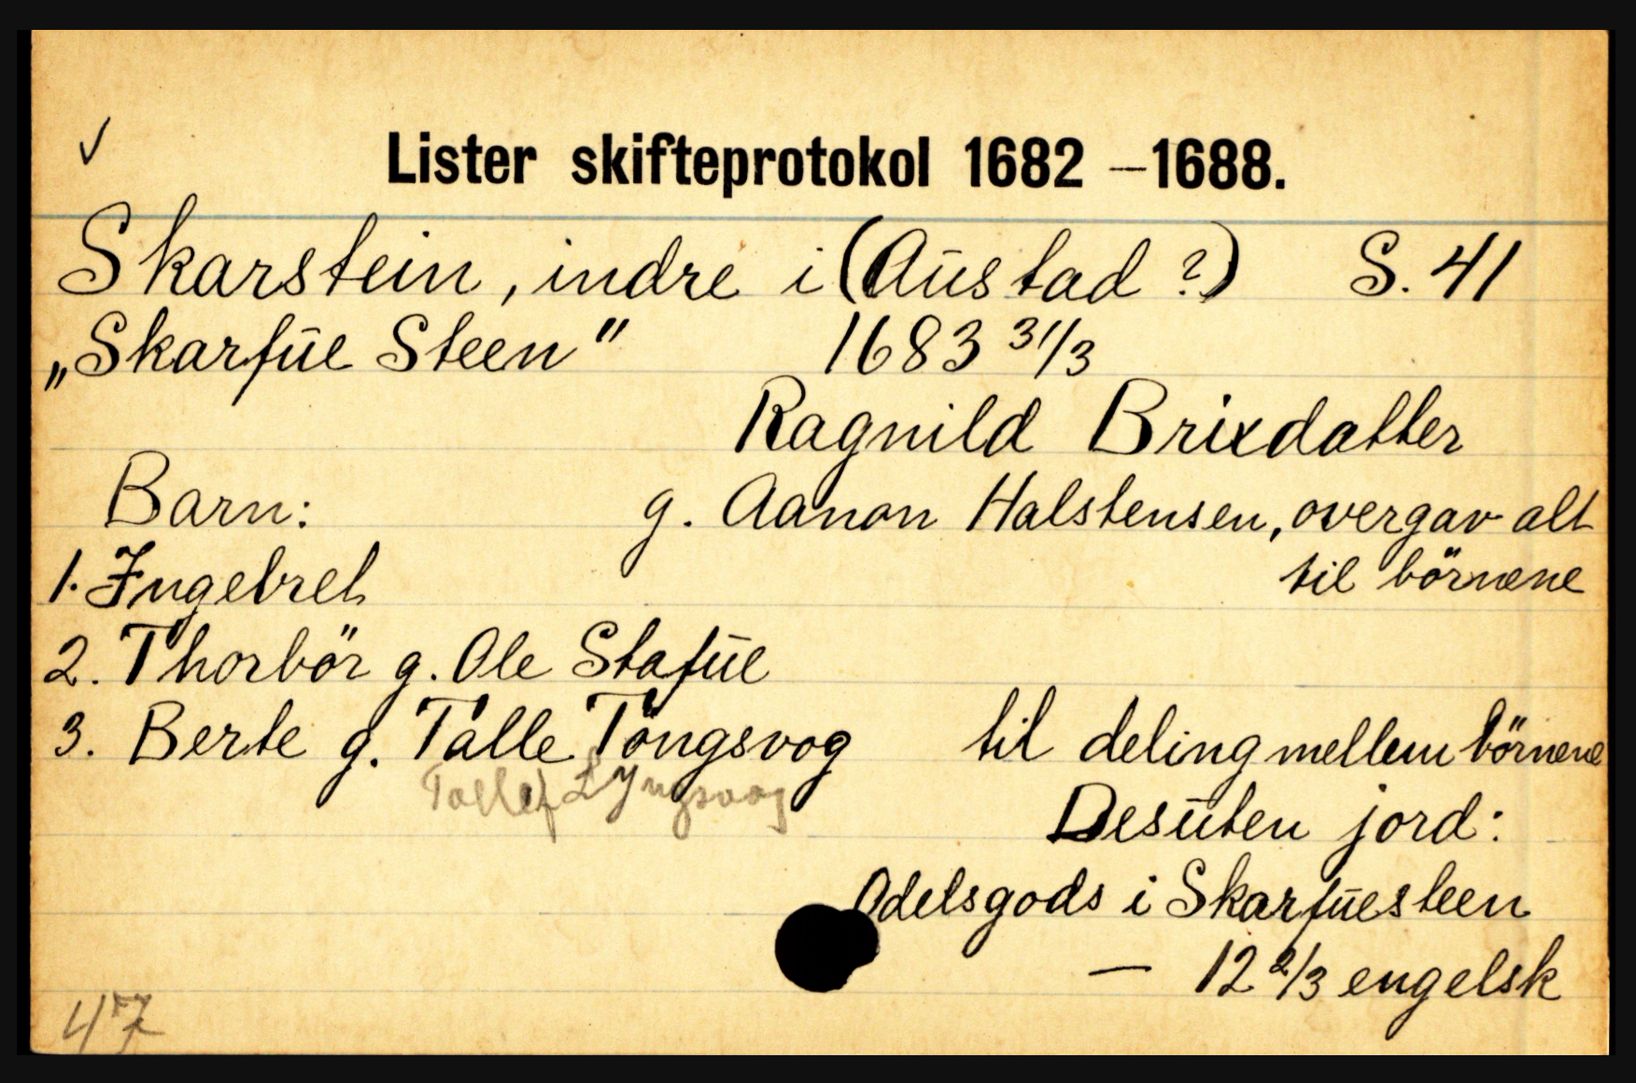 ✓
Lister skifteprotokol 1682 – 1688.
Skarstein, indre i (Aūstad ?) S. 41
„Skarfūe Steen" 1683 31/3
Ragnild Brixdatter
Barn: g. Aanon Halstensen, overgav alt
til börnene
1. Ingebret
2. Thorbör g. Ole Stafūe
3. Berte g. Talle Töngsvog til deling mellem börnene
Tollef Lyngsvog
Desūten jord:
Odelsgods i Skarfūesteen
— 12 2/3 engelsk
47